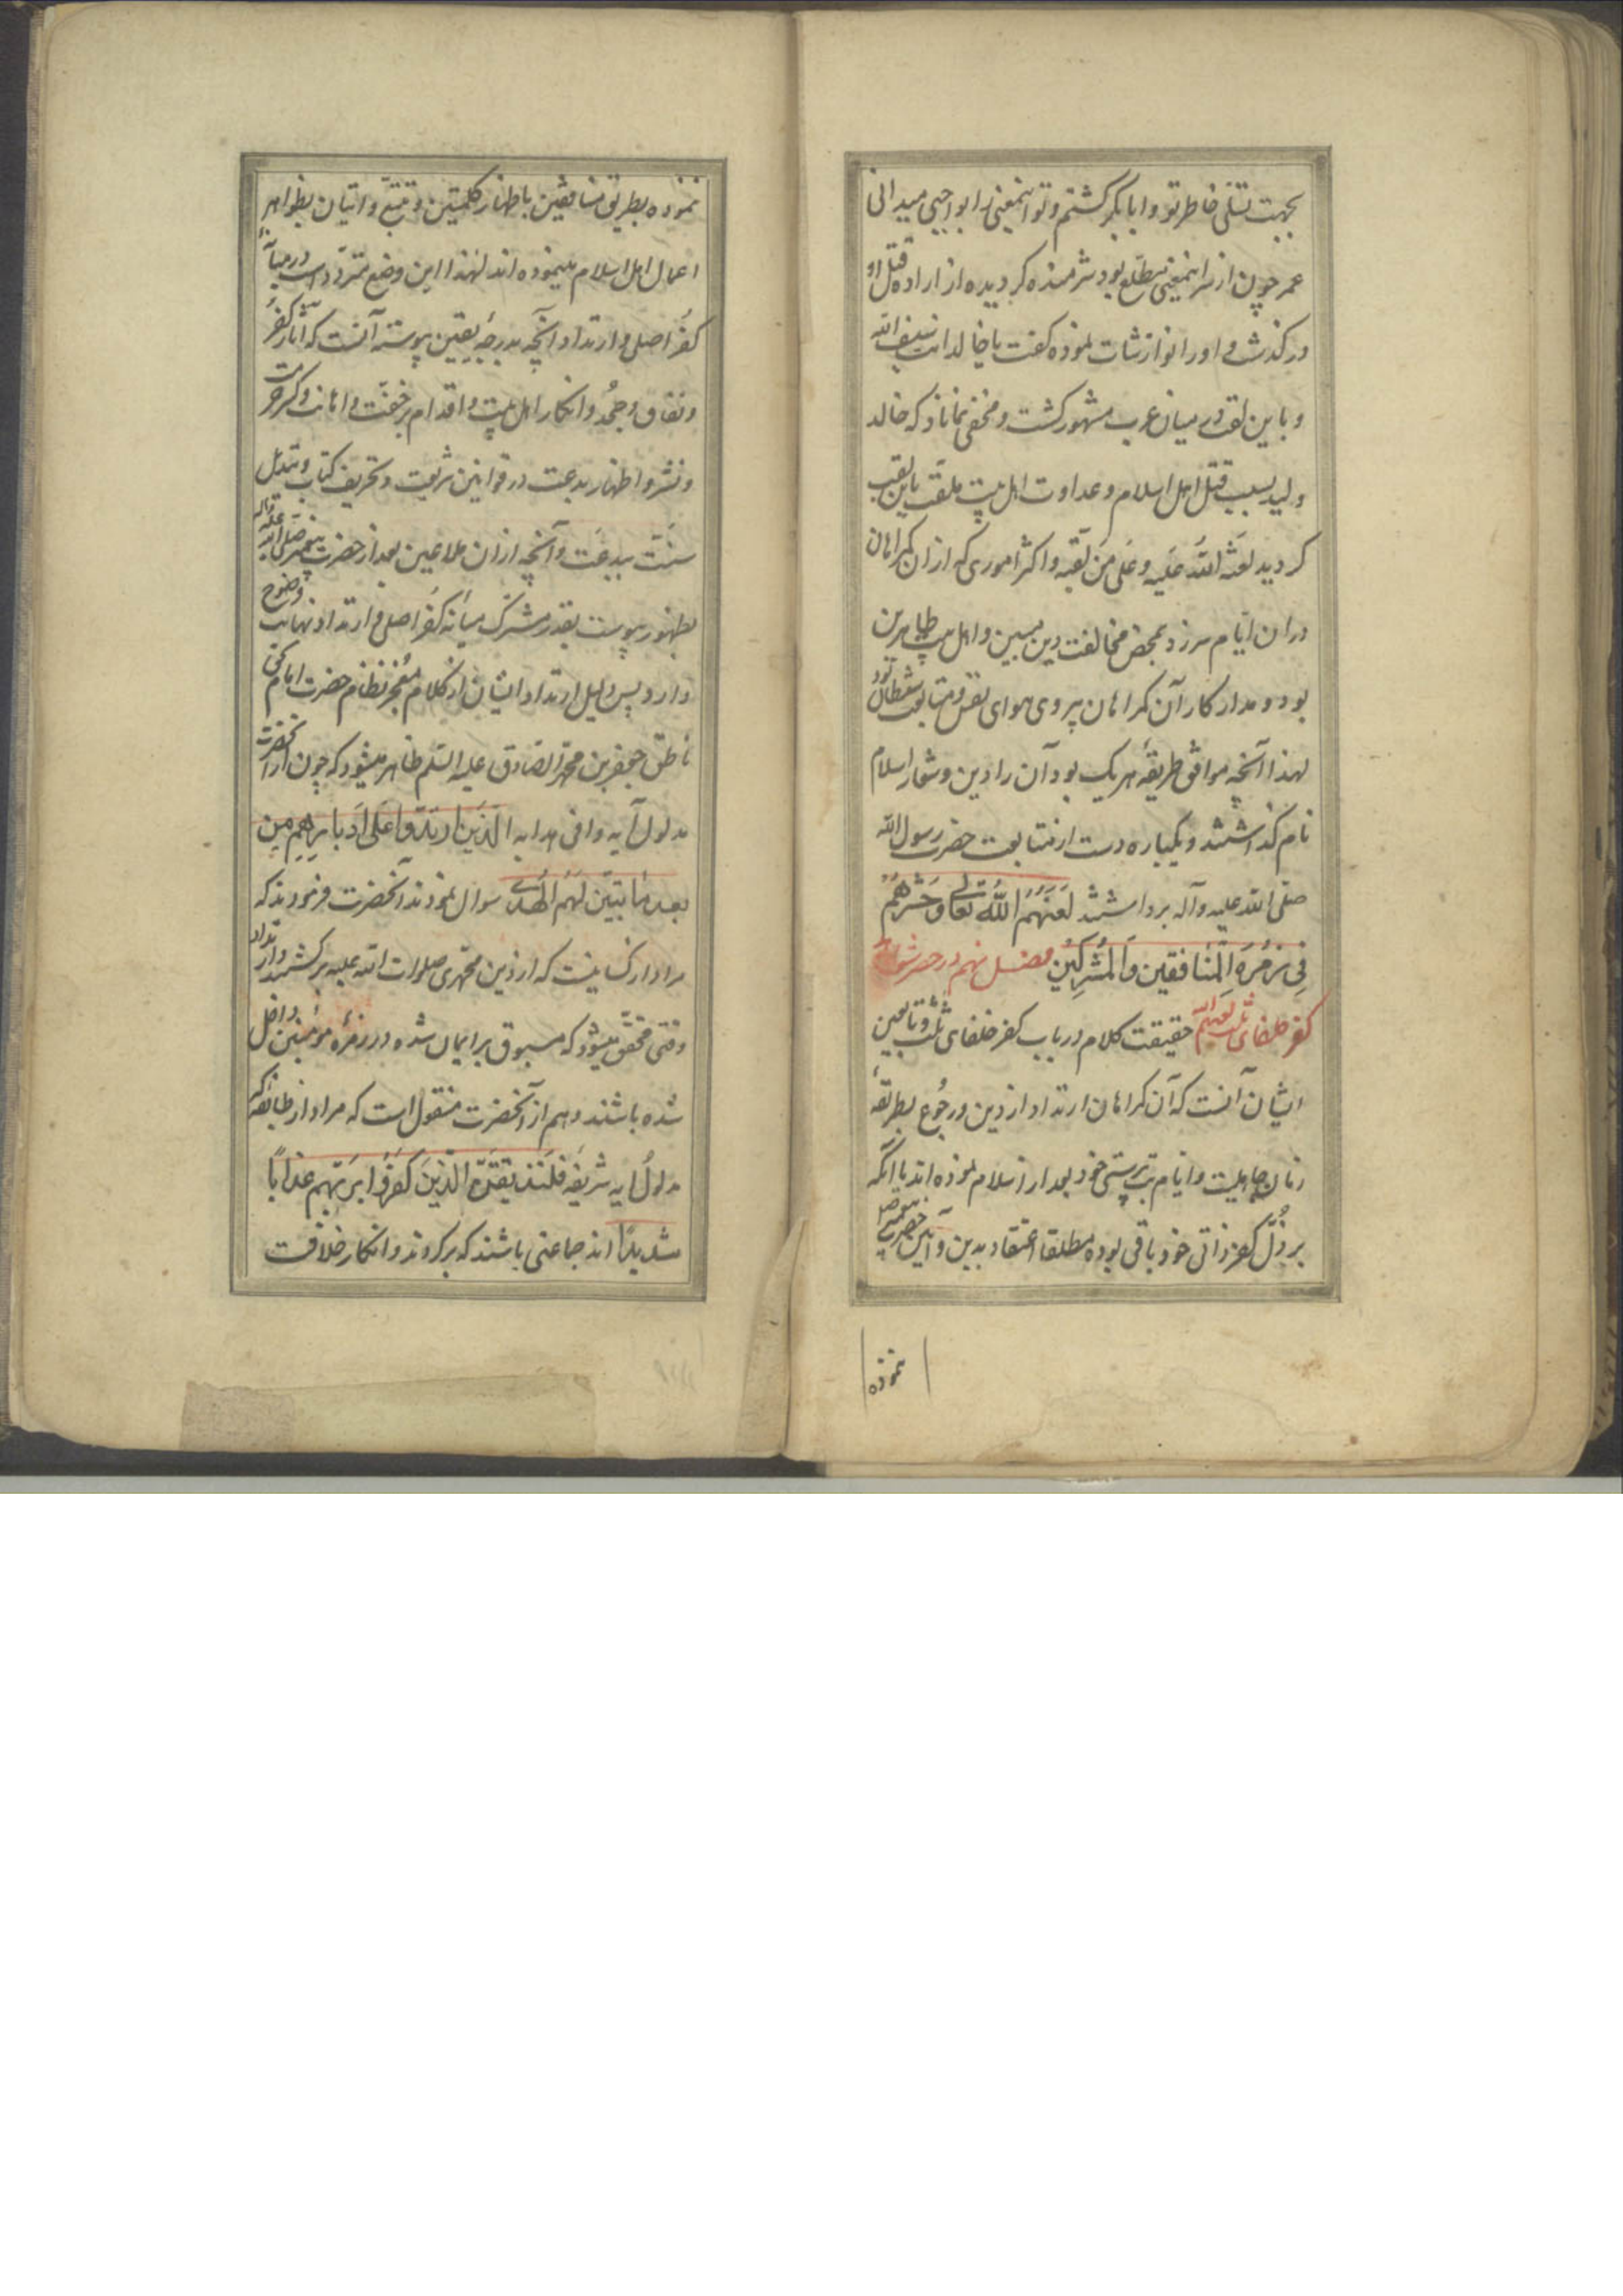 بجهت تسلی خاطر تو و ابا بکر کشتم و تو اینمعنی را بواجبی میدانی
عمر چون از سر اینمعنی مطلع بود شرمنده کردیده از اراده قتل او
در کذشت و او را نوازشات نموده کفت یا خالد انت سیف الله
و باین لقب در میان عرب مشهور کشت و مخفی نماناد که خالد
ولید بسبب قتل اهل اسلام و عداوت اهل بیت ملقب باین لقب
کردید لعنه الله علیه و علی من لقبه و اکثر اموری که از ان کمراهان
در ان ایام سر زد بمحض مخالفت دین مبین و اهل بیت طاهرین
بود و مدار کار آن کمراهان پیروی هوای نفس و متابعت شیطان بود
لهذا آنچه موافق طریقهٔ هریک بود آن را دین و شعار اسلام
نام کذاشتند و یکباره دست از متابعت حضرت رسول الله
صلی الله علیه و آله برداشتند لَعَنَهُمُ اللّهُ تعالی وَحَشَرَهُمْ
فِی زُمرَةِ المُنَافِقین وَالمُشرِکین فصل نهم در حصر شواهد
کفر خلفای ثلث لعنهم الله حقیقت کلام در باب کفر خلفای ثلث و تابعین
ایشان آنست که آن کمراهان ارتداد از دین و رجوع بطریقهٔ
زمان جاهلیت و ایام بت پرستی خود بعد از اسلام نموده اند یا آنکه
بر ذُلّ کفر ذاتی خود باقی بوده مطلقا اعتقاد بدین و آئین حضرت پیغمبر صلی
نموده
نموده بطریق منافقین باظهار کلمتین و تتبع و اتیان بظواهر
اعمال اهل اسلام مینموده اند لهذا این وضع متردد است در میانهٔ
کفر اصلی و ارتداد و آنچه بدرجهٔ یقین پیوسته آنست که آثار کفر
و نفاق و جحد و انکار اهل بیت و اقدام بر خفت و اهانت و کسر حرمت
و نشر و اظهار بدعت در قوانین شریعت و تحریف کتاب و تبدیل
سنت ببدعت و آنچه از ان ملاعین بعد از حضرت پیغمبر صلی الله علیه و آله
بظهور پیوست بقدر مشترک میانهٔ کفر اصلی و ارتداد نهایت وضوح
دارد پس دلیل ارتداد ایشان از کلام مُعجز نظام حضرت امام بحق
ناطق جعفر بن محمد الصادق علیه السلم ظاهر میشود که چون از انحضرت
مدلول آیه وافی هدایه الَّذینَ ارتَدّوا عَلَی اَدبارِهِم مِن
بعد ما تبیَّن لَهُم الهُدی سوال نمودند آنحضرت فرمودند که
مراد از کسانیست که از دین محمدی صلوات الله علیه برکشتند و ارتداد
وقتی محقق میشود که مسبوق بر ایمان شده در زمرهٔ مومنین داخل
شده باشند و هم از آنحضرت منقول است که مراد از طایفه که
مدلول ایه شریفه فَلَنُذیقَنَّ الّذینَ کَفَرُوا بربّهم عذاباً
شدیداً اند جماعتی باشند که برکردند و انکار خلافت